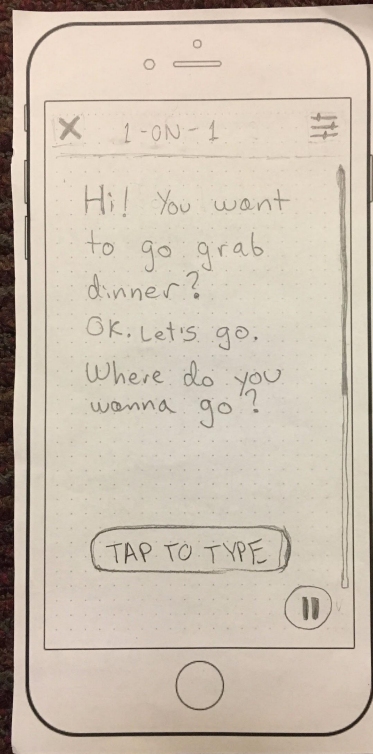 1-ON-1
Hi! You want
to go grab
dinner?
OK. Let's go.
Where do you
wanna go?
TAP TO TYPE